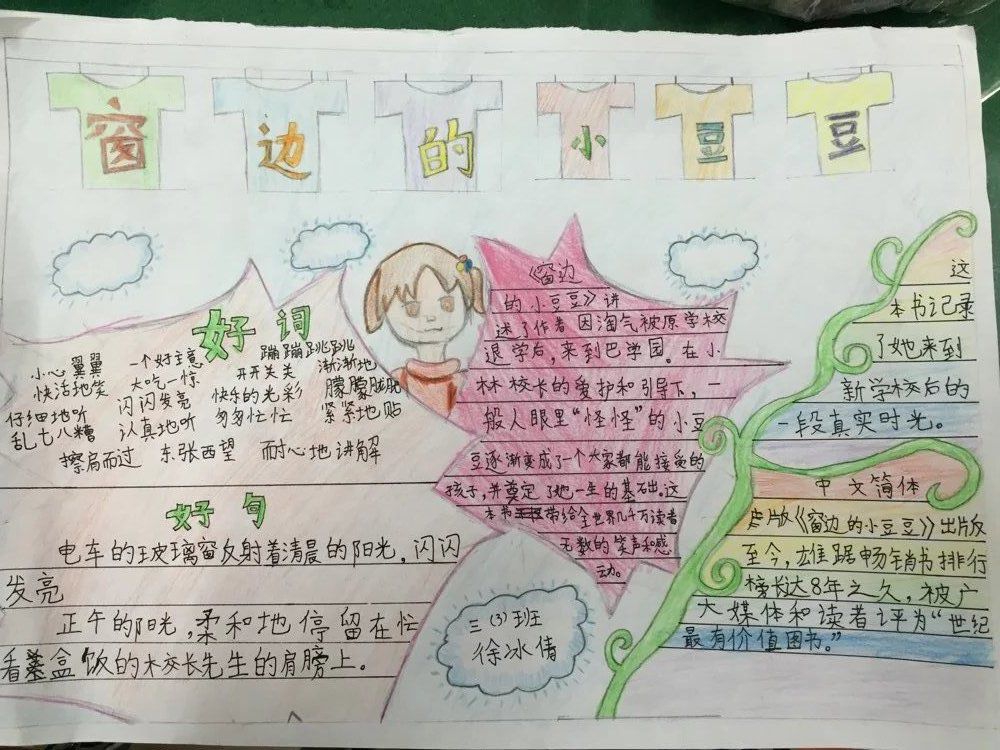 窗边的小豆豆
好词
小心翼翼 一个好主意 蹦蹦跳跳
快活地笑 大吃一惊 开开关关 渐渐地
仔细地听 闪闪发亮 快乐的光彩 朦朦胧胧
乱七八糟 认真地听 匆匆忙忙 紧紧地贴
擦肩而过 东张西望 耐心地讲解
好句
电车的玻璃窗反射着清晨的阳光，闪闪
发亮
正午的阳光，柔和地停留在忙
看盒饭的校长先生的肩膀上。
《窗边
的小豆豆》讲
述了作者因淘气被原学校
退学后，来到巴学园。在小
林校长的爱护和引导下，一
般人眼里“怪怪”的小豆
豆逐渐变成了一个大家都能接受的
孩子，并奠定了她一生的基础。这
本书带给全世界几千万读者
无数的笑声和感
动。
三(3)班
徐冰倩
这
本书记录
了她来到
新学校后的
一段真实时光。
中文简体
版《窗边的小豆豆》出版
至今，雄踞畅销书排行
榜长达8年之久，被广
大媒体和读者评为“世纪
最有价值图书。”